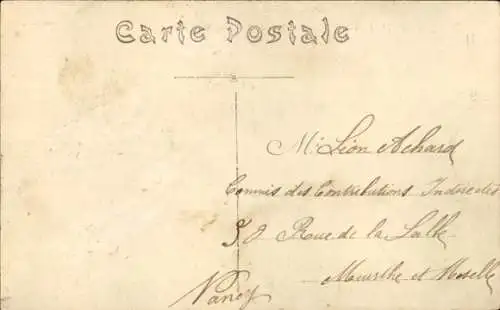 Carte Postale
Mr Léon Achard
Commis des Contributions Indirectes
58 Rue de la Salle
Meurthe et Moselle
Nancy